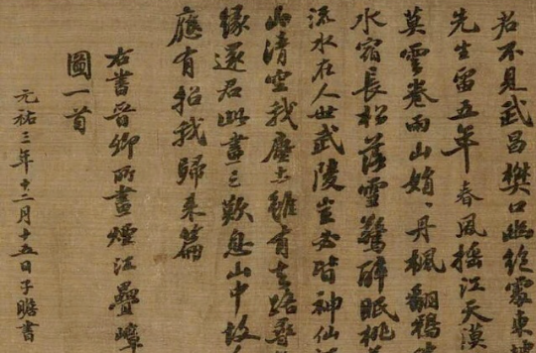 君不見武昌樊口幽絕處東坡
先生留五年春風搖江天漠
莫雲卷雨山娟丹楓翻鴉伴
水宿長松落雪驚醉眠桃花
流水在人世武陵豈必皆神仙
山清空我塵土雖有去路尋無
緣還君此畫三歎息山中故人
應有招我歸來篇
右書晉卿所畫煙江疊嶂
圖一首
元祐三年十二月十五日子瞻書